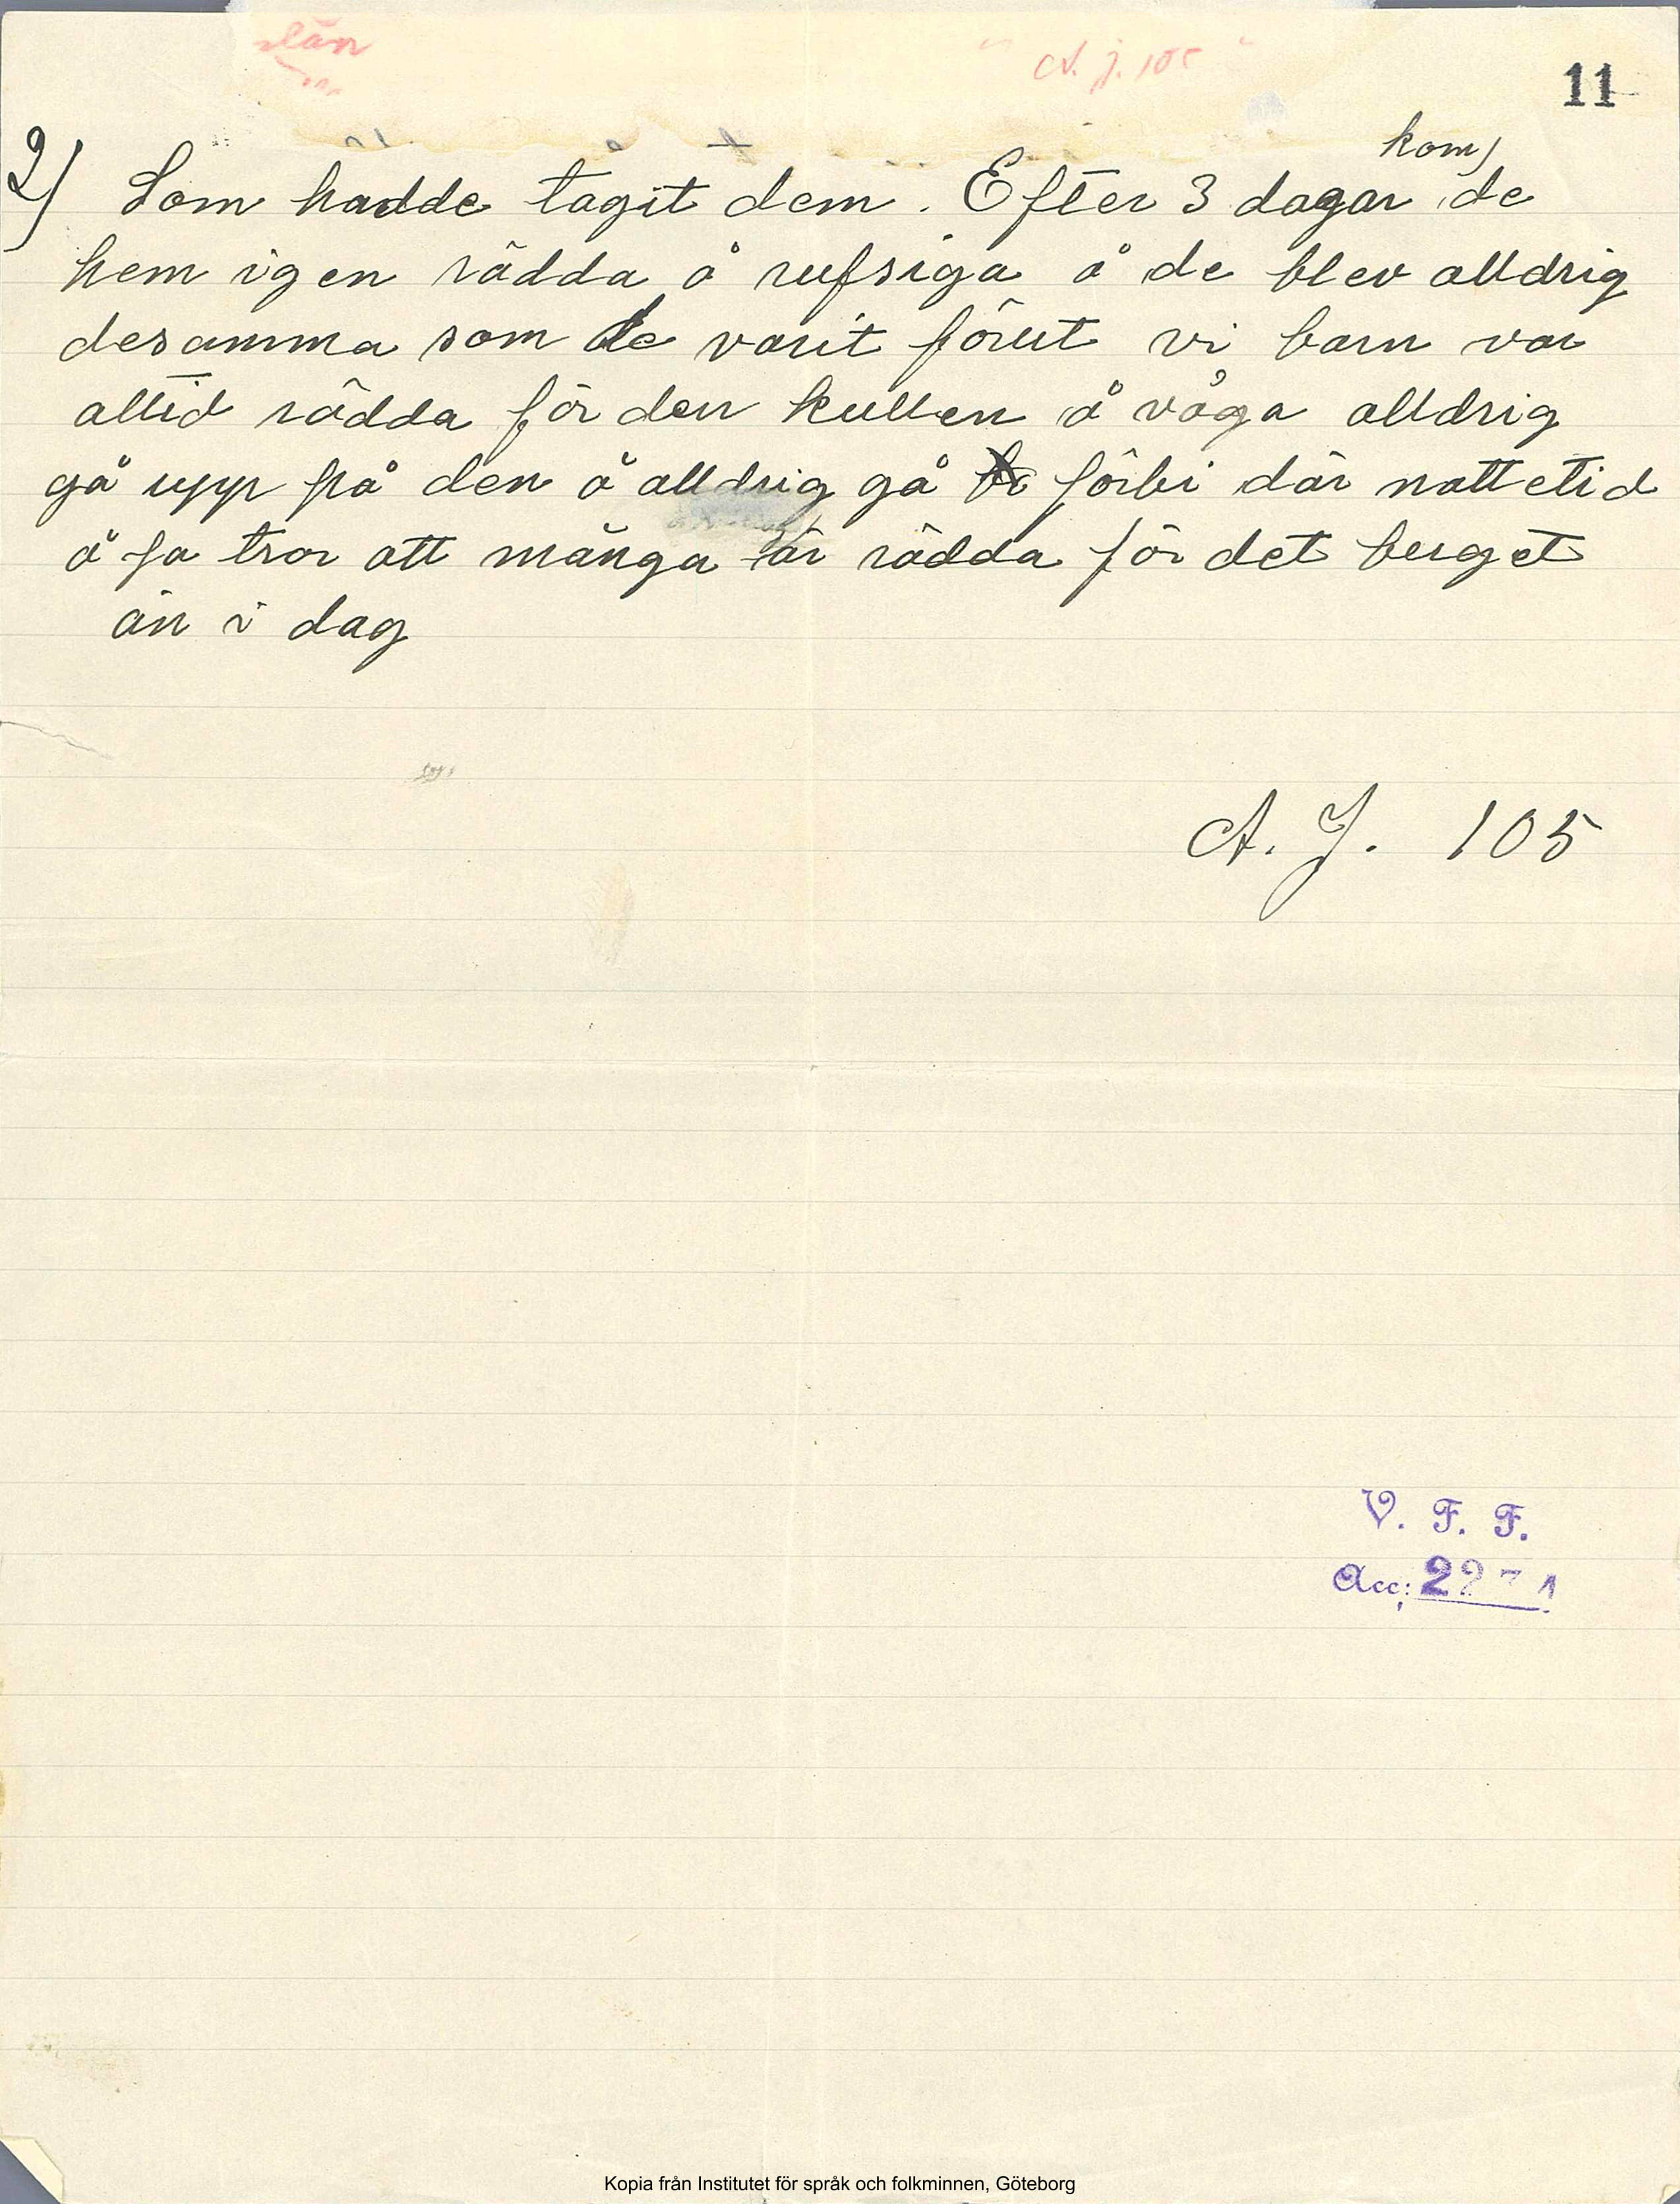 A. J. 105
11
kom/
2) Som hadde tagit dem. Efter 3 dagar de
hem igen rädda å rufsiga å de blev alldrig
desamma som de varit förut vi barn var
alltid rädda för den kullen å våga alldrig
gå upp på den å alldrig gå förbi där nattetid
å ja tror att många är rädda för det berget
än i dag
A. J. 105
V. F. F.
Acc: 22
Kopia från Institutet för språk och folkminnen, Göteborg